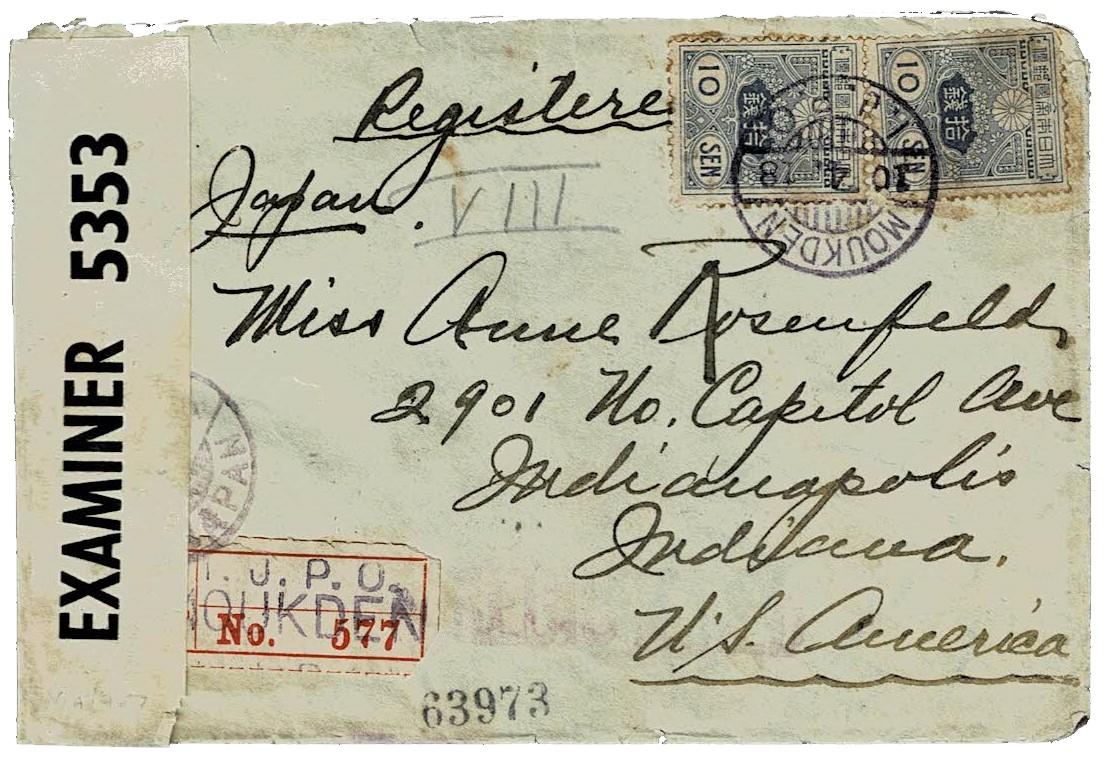 Registere
Japan.
VIII
10 SEN
拾銭
10 SEN
拾銭
I.J.P.O.
10 4 18
MOUKDEN
R
Miss Anne Rosenfeld,
2901 No. Capitol Ave
Indianapolis
Indiana.
U.S. America
EXAMINER 5353
I.J.P.O.
MOUKDEN
No. 577
63973